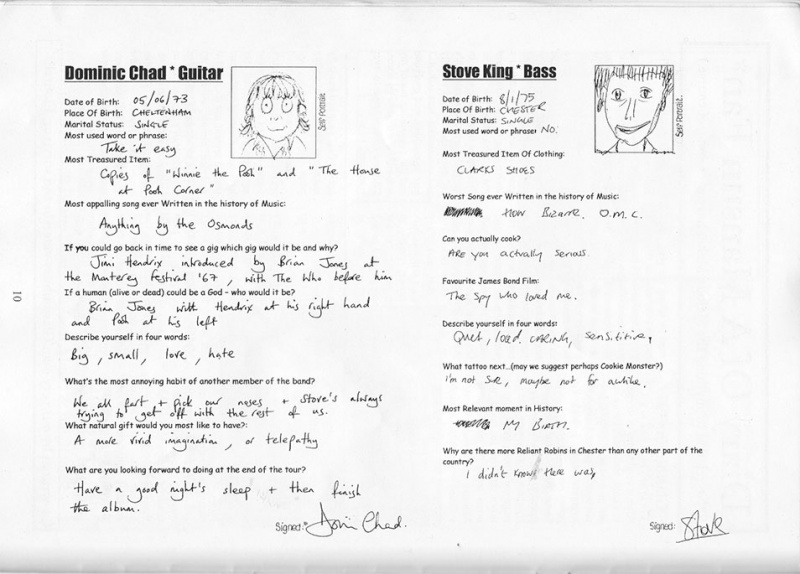 Dominic Chad * Guitar
Date of Birth: 05/06/73
Place Of Birth: CHELTENHAM
Marital Status: SINGLE
Most used word or phrase:
Take it easy
Most Treasured Item:
Copies of "Winnie the Pooh" and "The House
at Pooh Corner"
Most appalling song ever Written in the history of Music:
Anything by the Osmonds
If you could go back in time to see a gig which gig would it be and why?
Jimi Hendrix introduced by Brian Jones at
the Monterey festival '67, with The Who before him
If a human (alive or dead) could be a God – who would it be?
Brian Jones with Hendrix at his right hand
and Pooh at his left
Describe yourself in four words:
Big, small, love, hate
What's the most annoying habit of another member of the band?
We all fart + pick our noses + Stove's always
trying to get off with the rest of us.
What natural gift would you most like to have?:
A more vivid imagination, or telepathy
What are you looking forward to doing at the end of the tour?
Have a good night's sleep + then finish
the album.
Signed: Domin Chad.
Self Portrait
10
Stove King * Bass
Date of Birth: 8/1/75
Place Of Birth: CHESTER
Marital Status: SINGLE
Most used word or phrase: NO.
Self Portrait.
Most Treasured Item Of Clothing:
CLARKS SHOES
Worst Song ever Written in the history of Music:
HOW BIZARRE. O.M.C.
Can you actually cook?
ARE you actually serious.
Favourite James Bond Film:
The Spy who loved me.
Describe yourself in four words:
Quiet, loud, CARING, sensitive,
What tattoo next...(may we suggest perhaps Cookie Monster?)
I'm not sure, maybe not for awhile.
Most Relevant moment in History:
MY BIRTH.
Why are there more Reliant Robins in Chester than any other part of the
country?
I didn't know there was,
Signed: Stove